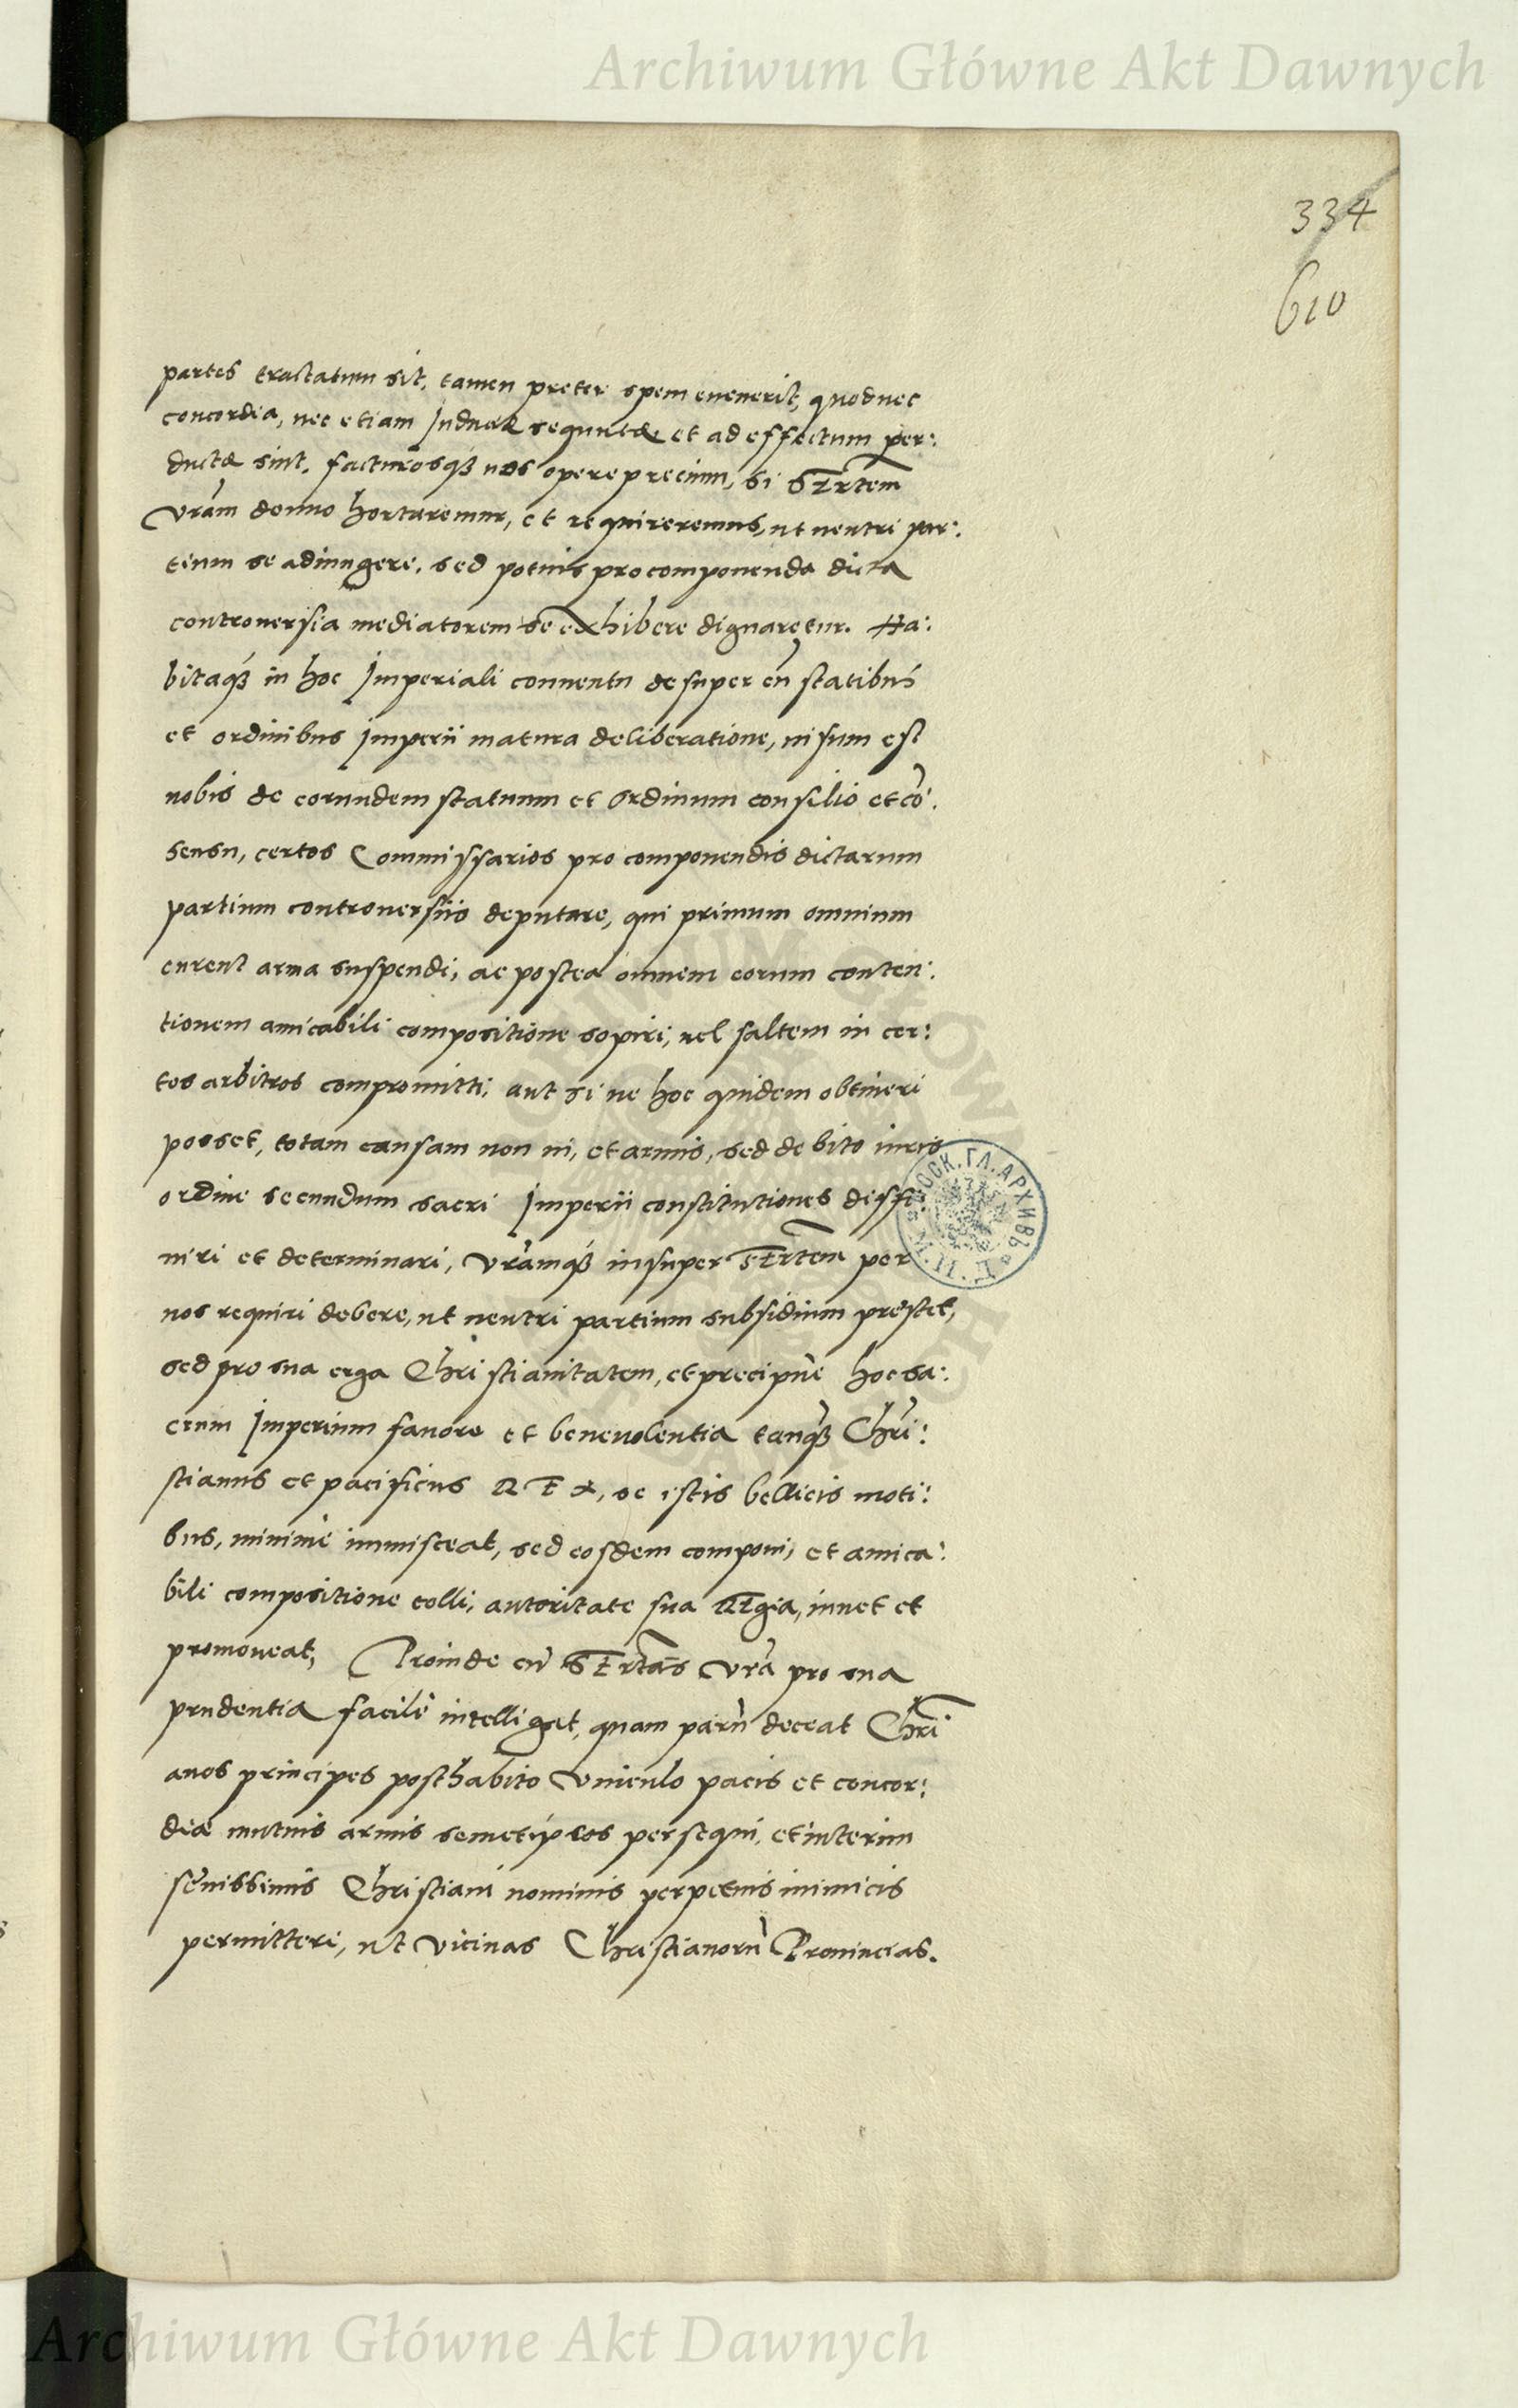 Archiwum Główne Akt Dawnych
334
610
partes tractatum sit, tamen preter spem evenerit, quod nec
concordia, nec etiam Induciæ sequutæ, et ad effectum per:
ductæ sint, facturosq3 nos opere precium, si SERtem
Vram denuo hortaremur, et requireremus, ut neutri par:
tium se adiungere, sed potius pro componenda dicta
controversia mediatorem se exhibere dignaretur. Ha:
bitaq3 in hoc Imperiali conventu desuper cū statibus
et ordinibus Imperii matura deliberatione, visum est
nobis de eorundem statuum et Ordinum consilio et cō:
sensu, certos Commissarios pro componendis dictarum
partium controversiis deputare, qui primum omnium
curent arma suspendi, ac postea omnem eorum conten:
tionem amicabili compositione sopiri, vel saltem in cer:
tos arbitros compromitti, aut si ne hoc quidem obtineri
posset, totam causam non vi, et armis, sed debito iuris
ordine secundum sacri Imperii constitutiones deffi:
niri et determinari, Vramq3 insuper SERtem per
nos requiri debere, ut neutri partium subsidium prestet,
sed pro sua erga Christianitatem, et precipuè hoc sa:
crum Imperium favore et benevolentia tanq3 Chri:
stianus et pacificus REX, se istis bellicis moti:
bus, minimè immisceat, sed eosdem componi, et amica:
bili compositione tolli, autoritate sua REgia, iuvet et
promoveat, Proinde cū SERtas Vra pro sua
prudentia facilè intelligat, quam parū deceat Chri
anos principes posthabito Vniculo pacis et concor:
diæ mutuis armis semetipsos persequi, et interim
sevissimis Christiani nominis perpetuis inimicis
permittere, ut Vicinas Christianorū Provincias.
Archiwum Główne Akt Dawnych